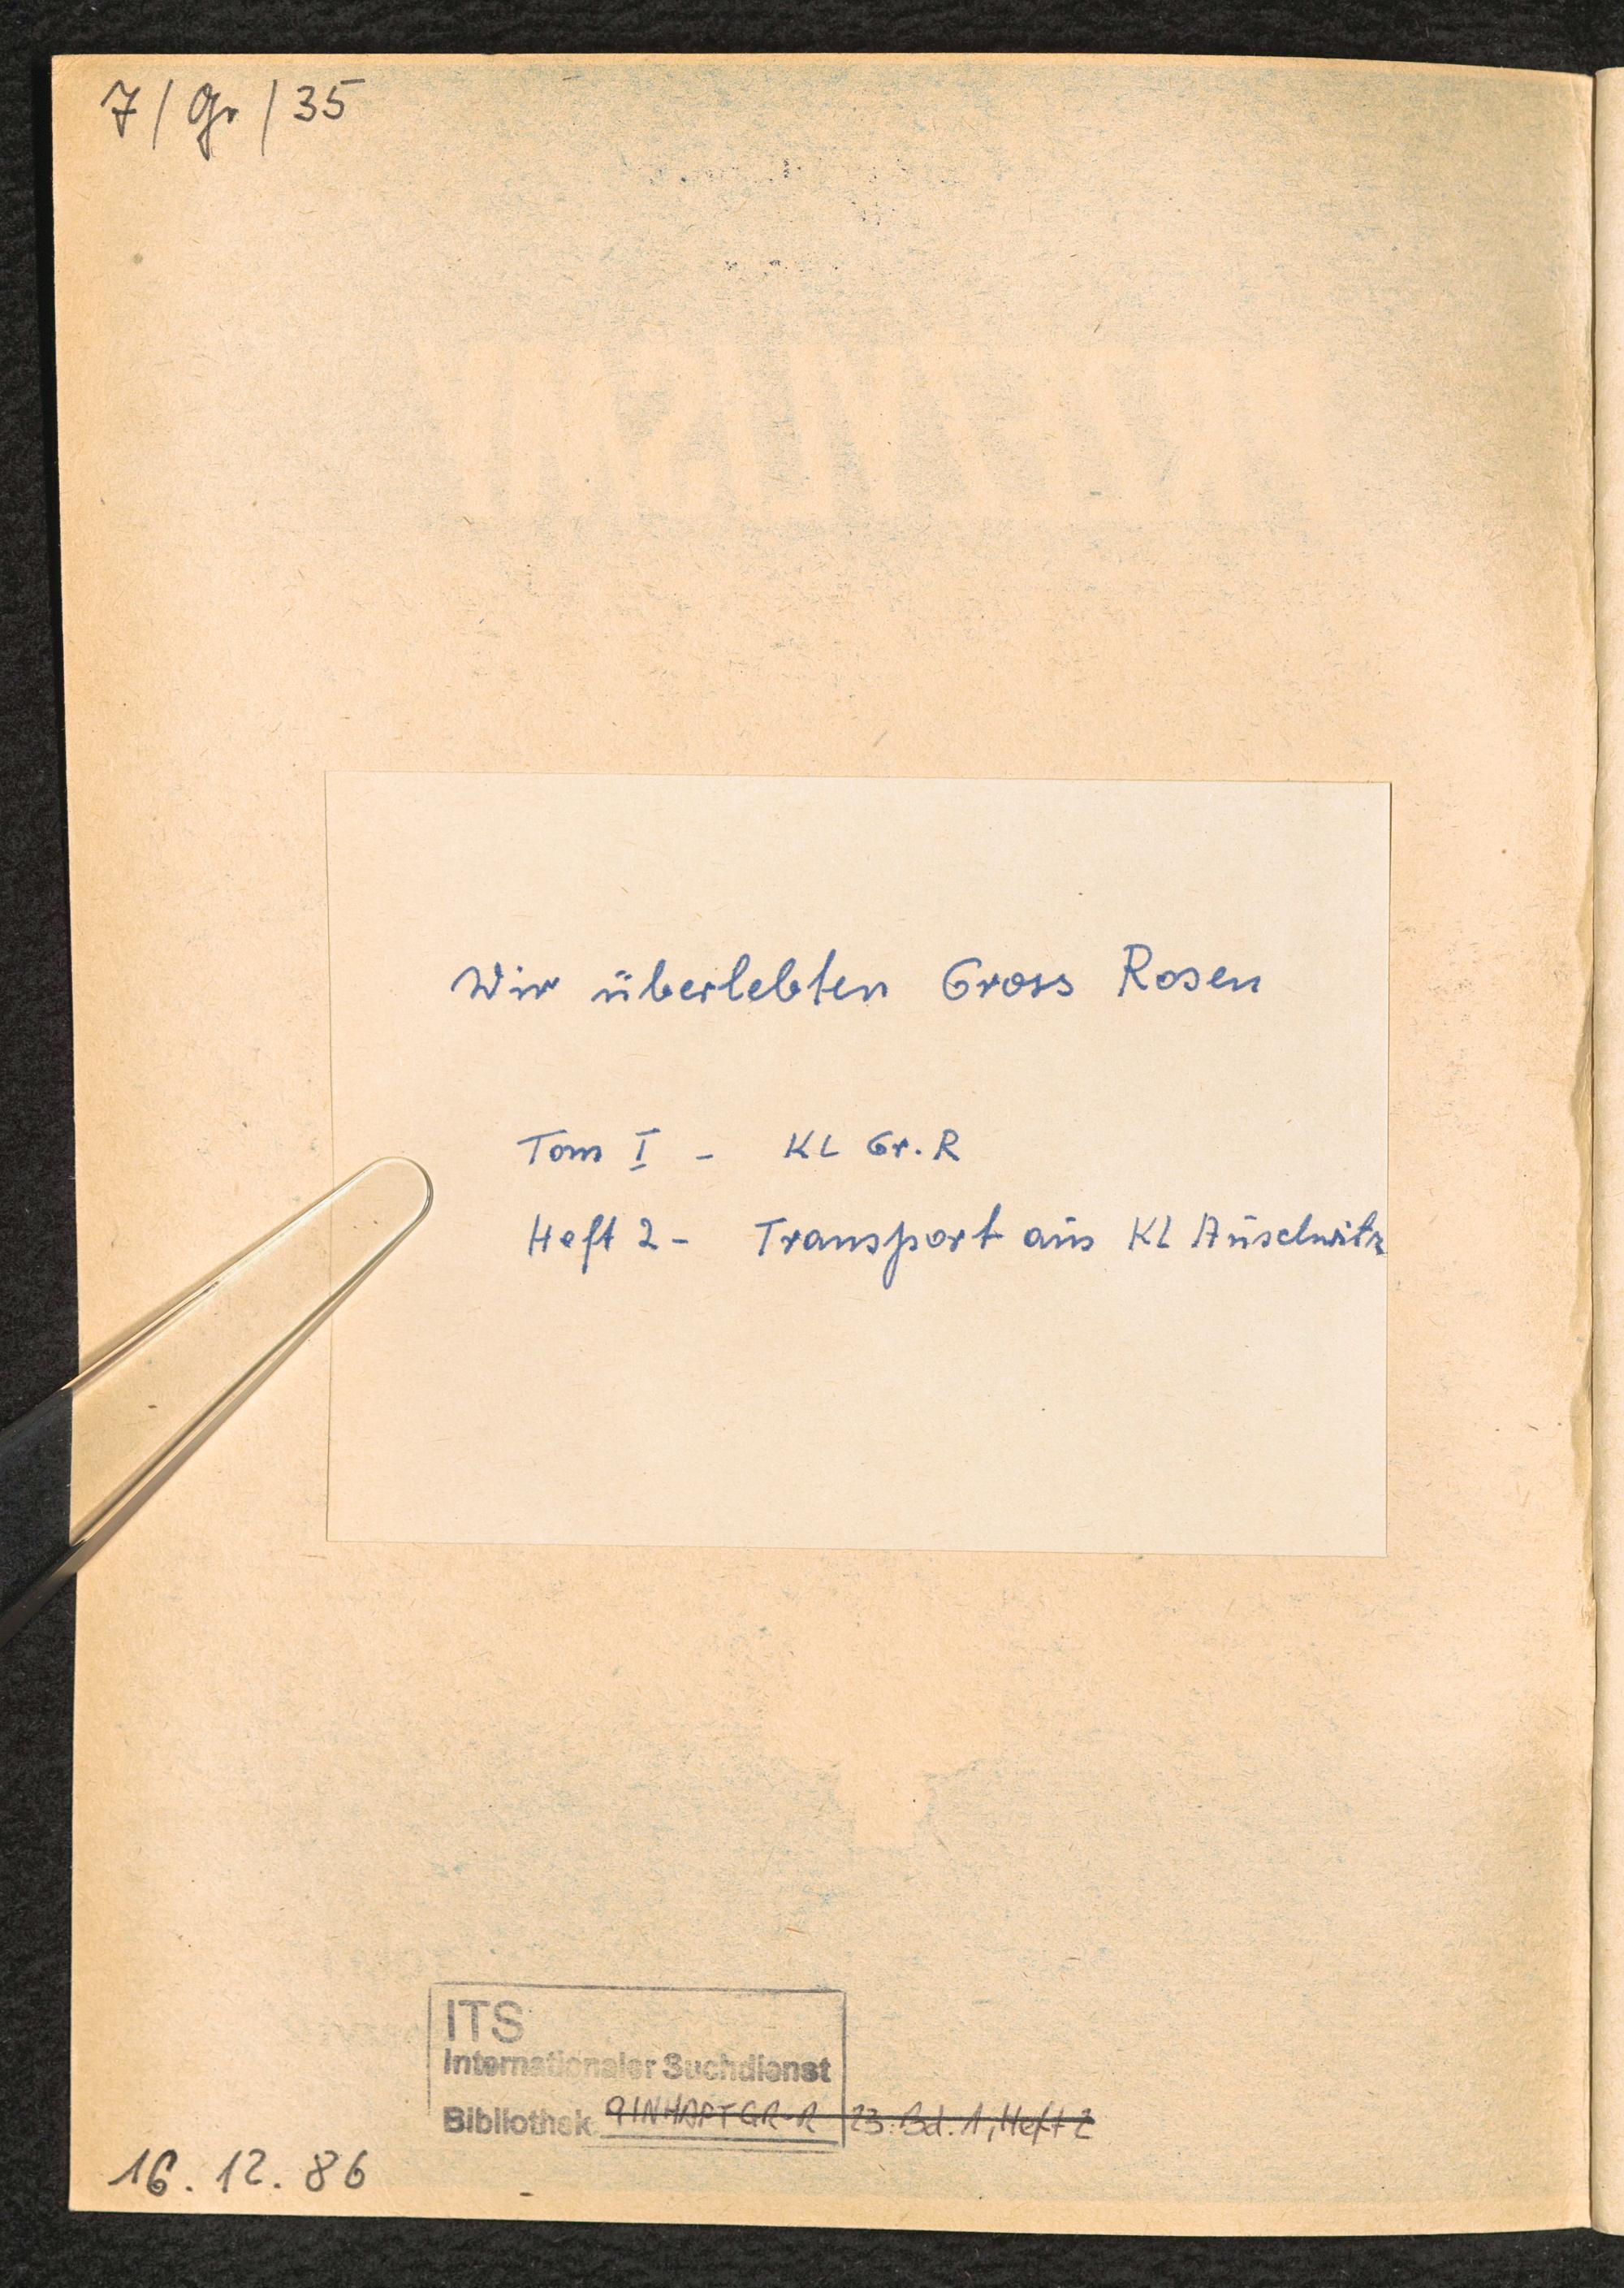 7/Gr/35
Wir überlebten Gross Rosen
Tom I - KL Gr. R
Heft 2 - Transport aus KL Auschwitz
ITS
Internationaler Suchdienst
Bibliothek 9INHAFTGR-R 23. Bd. 1, Heft 2
16. 12. 86